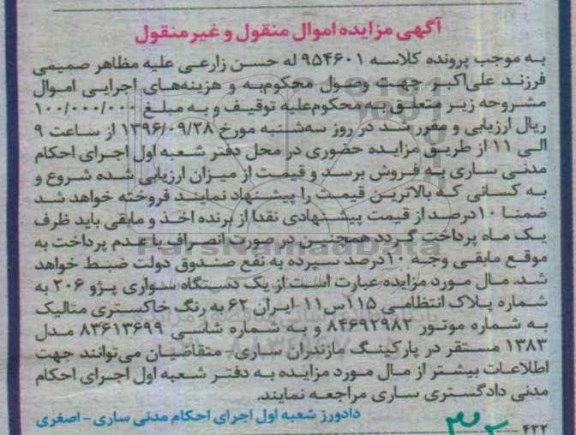 آگهی مزایده اموال منقول و غیرمنقول
به موجب پرونده کلاسه ۹۵۴۶۰۱ له حسن زارعی علیه مظاهر صمیمی
فرزند علی‌اکبر جهت وصول محکوم‌به و هزینه‌های اجرایی اموال
مشروحه زیر متعلق به محکوم‌علیه توقیف و به مبلغ ۱۰۰/۰۰۰/۰۰۰
ریال ارزیابی و مقرر شد در روز سه‌شنبه مورخ ۱۳۹۶/۰۹/۲۸ از ساعت ۹
الی ۱۱ از طریق مزایده حضوری در محل دفتر شعبه اول اجرای احکام
مدنی ساری به فروش برسد و قیمت از میزان ارزیابی شده شروع و
به کسانی که بالاترین قیمت را پیشنهاد نمایند فروخته خواهد شد
ضمنا ۱۰درصد از قیمت پیشنهادی نقدا از برنده اخذ و مابقی باید ظرف
یک ماه پرداخت گردد همچنین در صورت انصراف یا عدم پرداخت به
موقع مابقی وجه ۱۰درصد سپرده به نفع صندوق دولت ضبط خواهد
شد. مال مورد مزایده عبارت است از یک دستگاه سواری پژو ۲۰۶ به
شماره پلاک انتظامی ۱۱۵س۱۱-ایران ۶۲ به رنگ خاکستری متالیک
به شماره موتور ۸۴۶۹۲۹۸۲ و به شماره شاسی ۸۳۶۱۳۶۹۹ مدل
۱۳۸۳ مستقر در پارکینگ مازندران ساری/ متقاضیان می‌توانند جهت
اطلاعات بیشتر از مال مورد مزایده به دفتر شعبه اول اجرای احکام
مدنی دادگستری ساری مراجعه نمایند.
دادورز شعبه اول اجرای احکام مدنی ساری- اصغری
۴۲۲